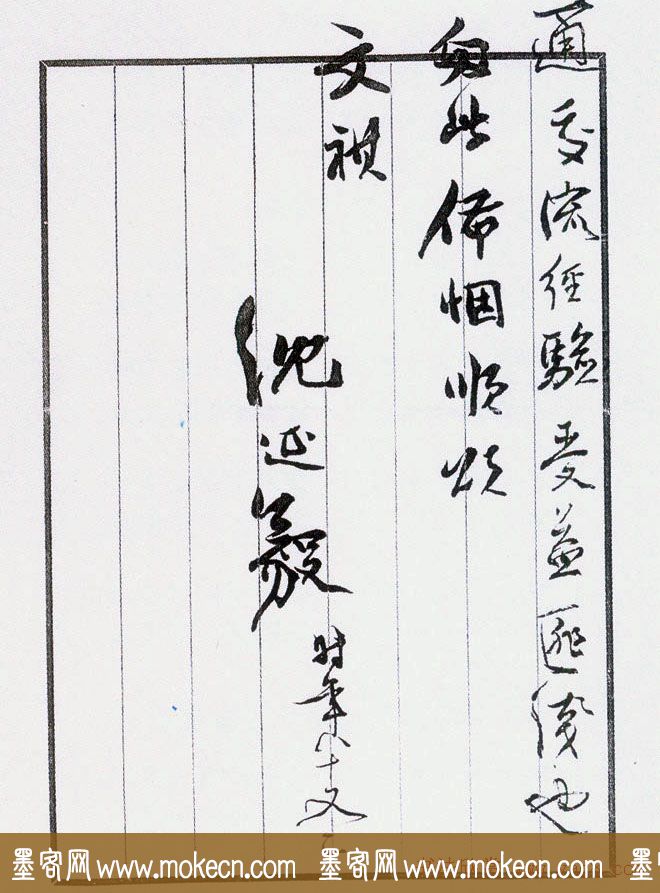 通交流經驗受益匪淺也
匆此佈悃順頌
文祺
沈延毅
时年八十又
墨客网 www.mokecn.com 墨客网 www.mokecn.com